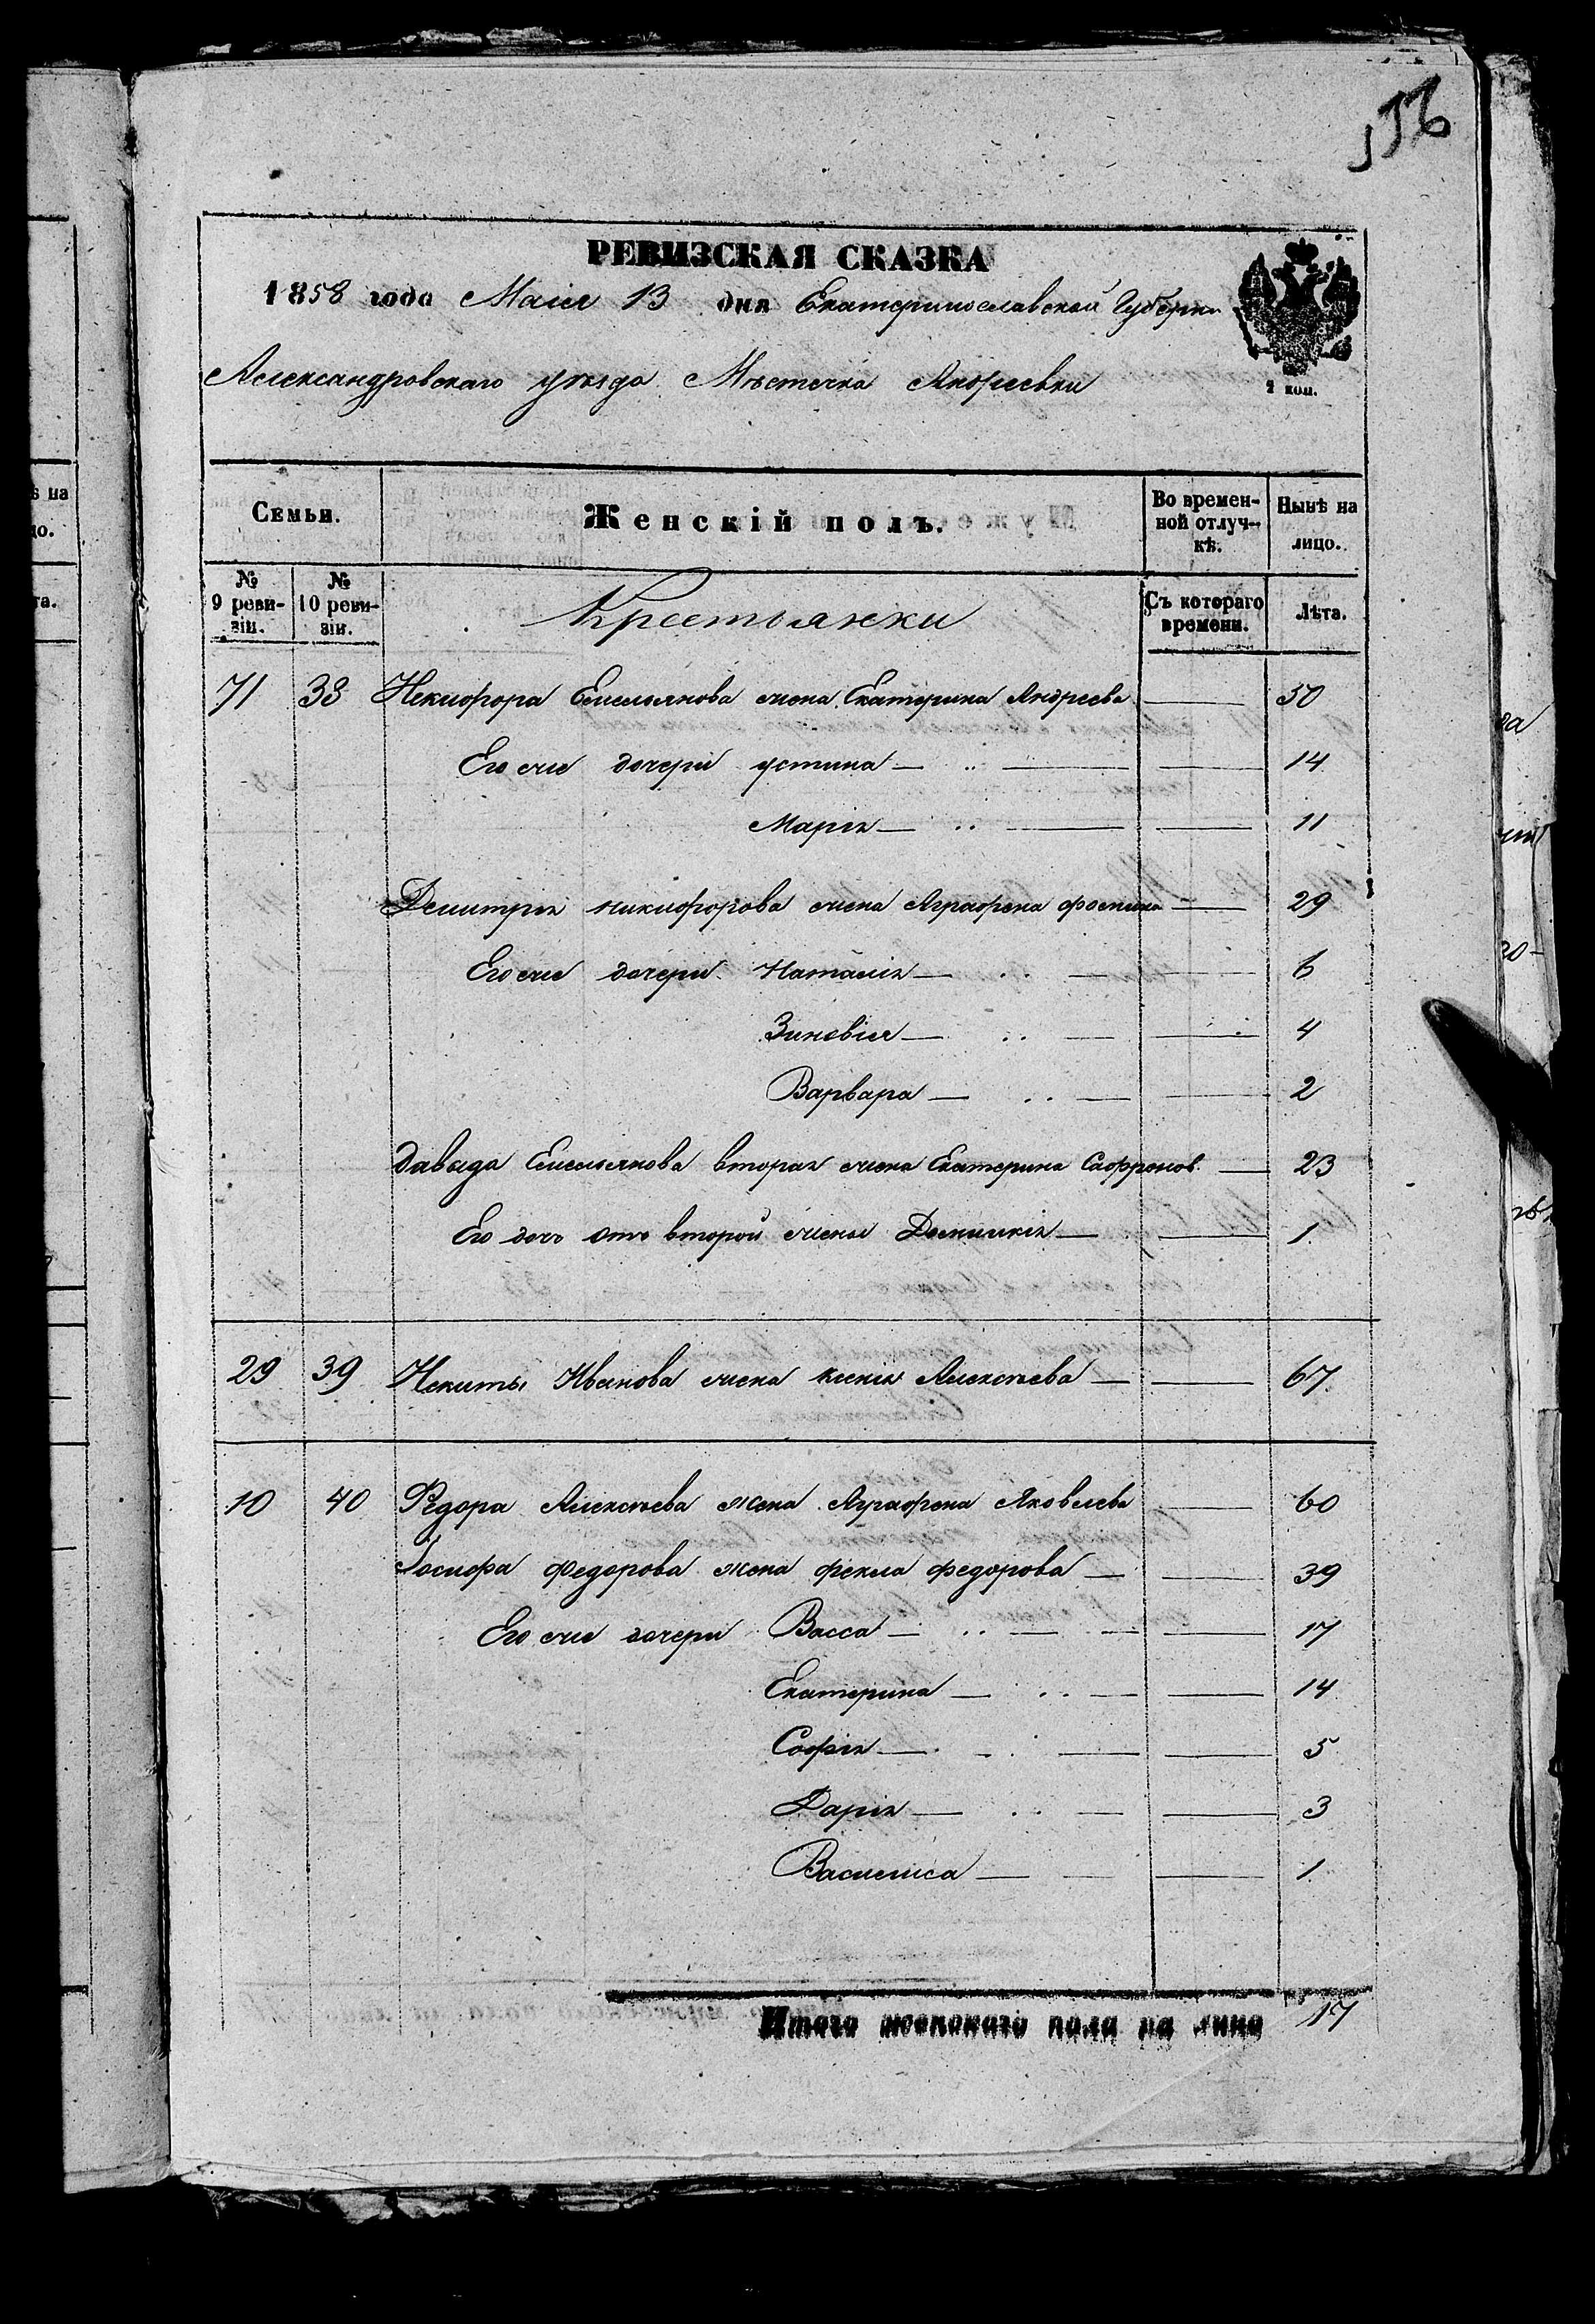 РЕВИЗСКАЯ СКАЗКА
1858 года Маія 13 дня Екатеринославской Губерніи
Александровскаго уѣзда Мѣстечка Андреевки
2 коп.
Семьи. Женскій полъ. Во временной отлучкѣ. Нынѣ на лицо.
№ 9 ревизіи. № 10 ревизіи. Крестьянки Съ котораго времени. Лѣта.
71 38 Никифора Емельянова жена Екатерина Андреева 50
Его же дочери устина 14
Марія 11
Демитрія никифорова жена Аграфена фомина 29
Его же дочери Наталія 6
Зиновія 4
Варвара 2
Давыда Емельянова вторая жена Екатерина Сафронов. 23
Его дочь отъ второй жены Домникія 1
29 39 Никиты Иванова жена ксенія Алексѣева 67
10 40 Федора Алексѣева жена Аграфена Яковлева 60
Іосифа федорова жена фекла федорова 39
Его же дочери Васса 17
Екатерина 14
Софія 5
Дарія 3
Василиса 1
Итого женскаго пола на лицо 17